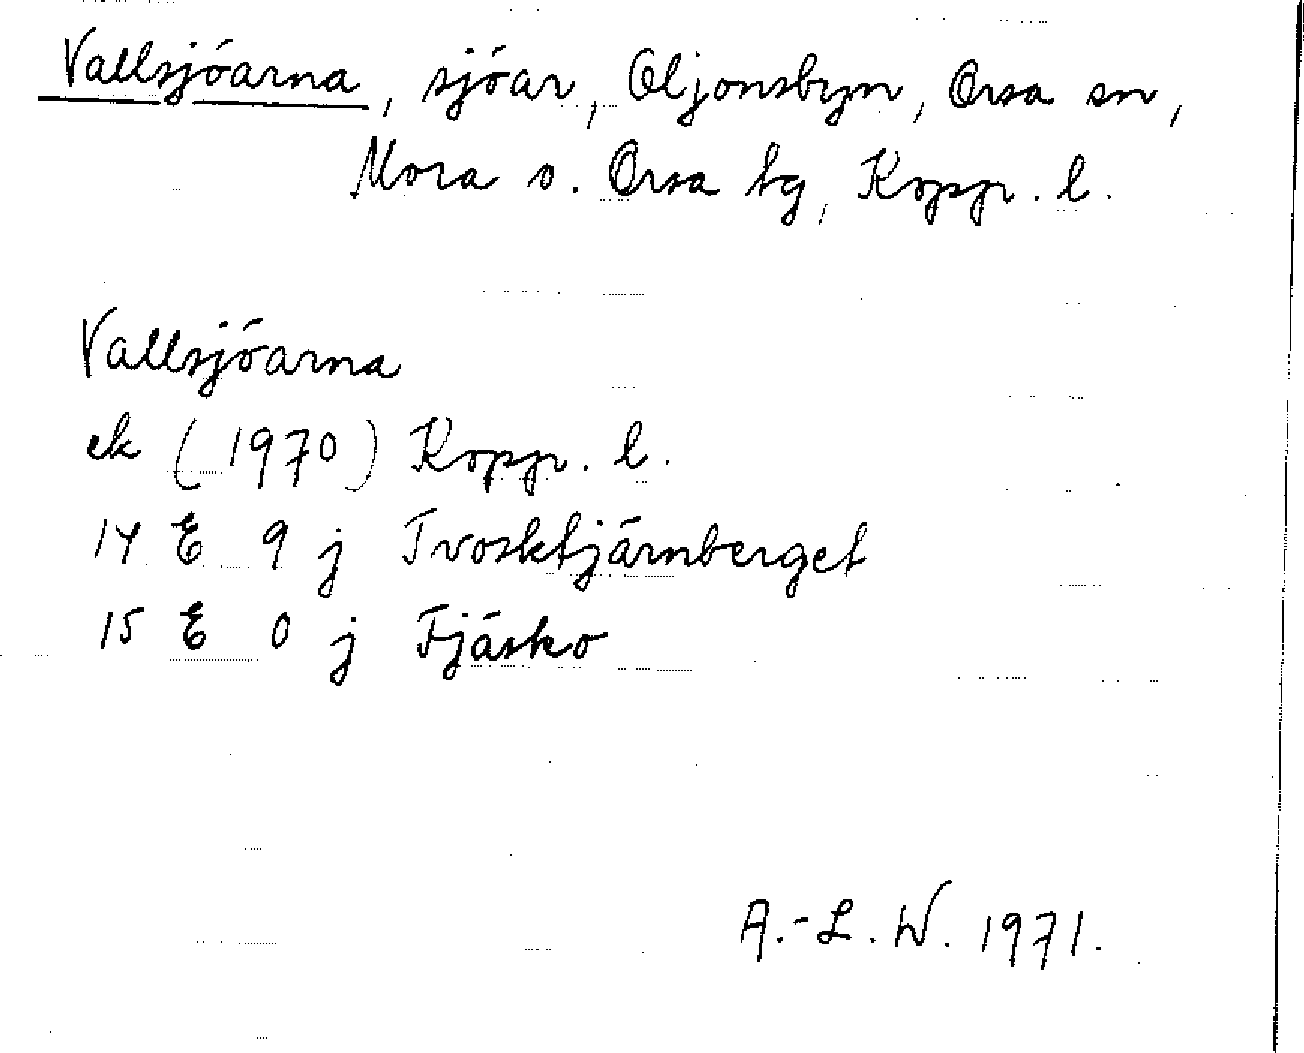 Vallsjöarna, sjöar, Oljonsbyn, Orsa sn,
Mora o. Orsa tg, Kopp. l.
Vallsjöarna
ek (1970) Kopp. l.
14 E 9 j Tvosktjärnberget
15 E 0 j Fjäsko
A.-L. W. 1971.